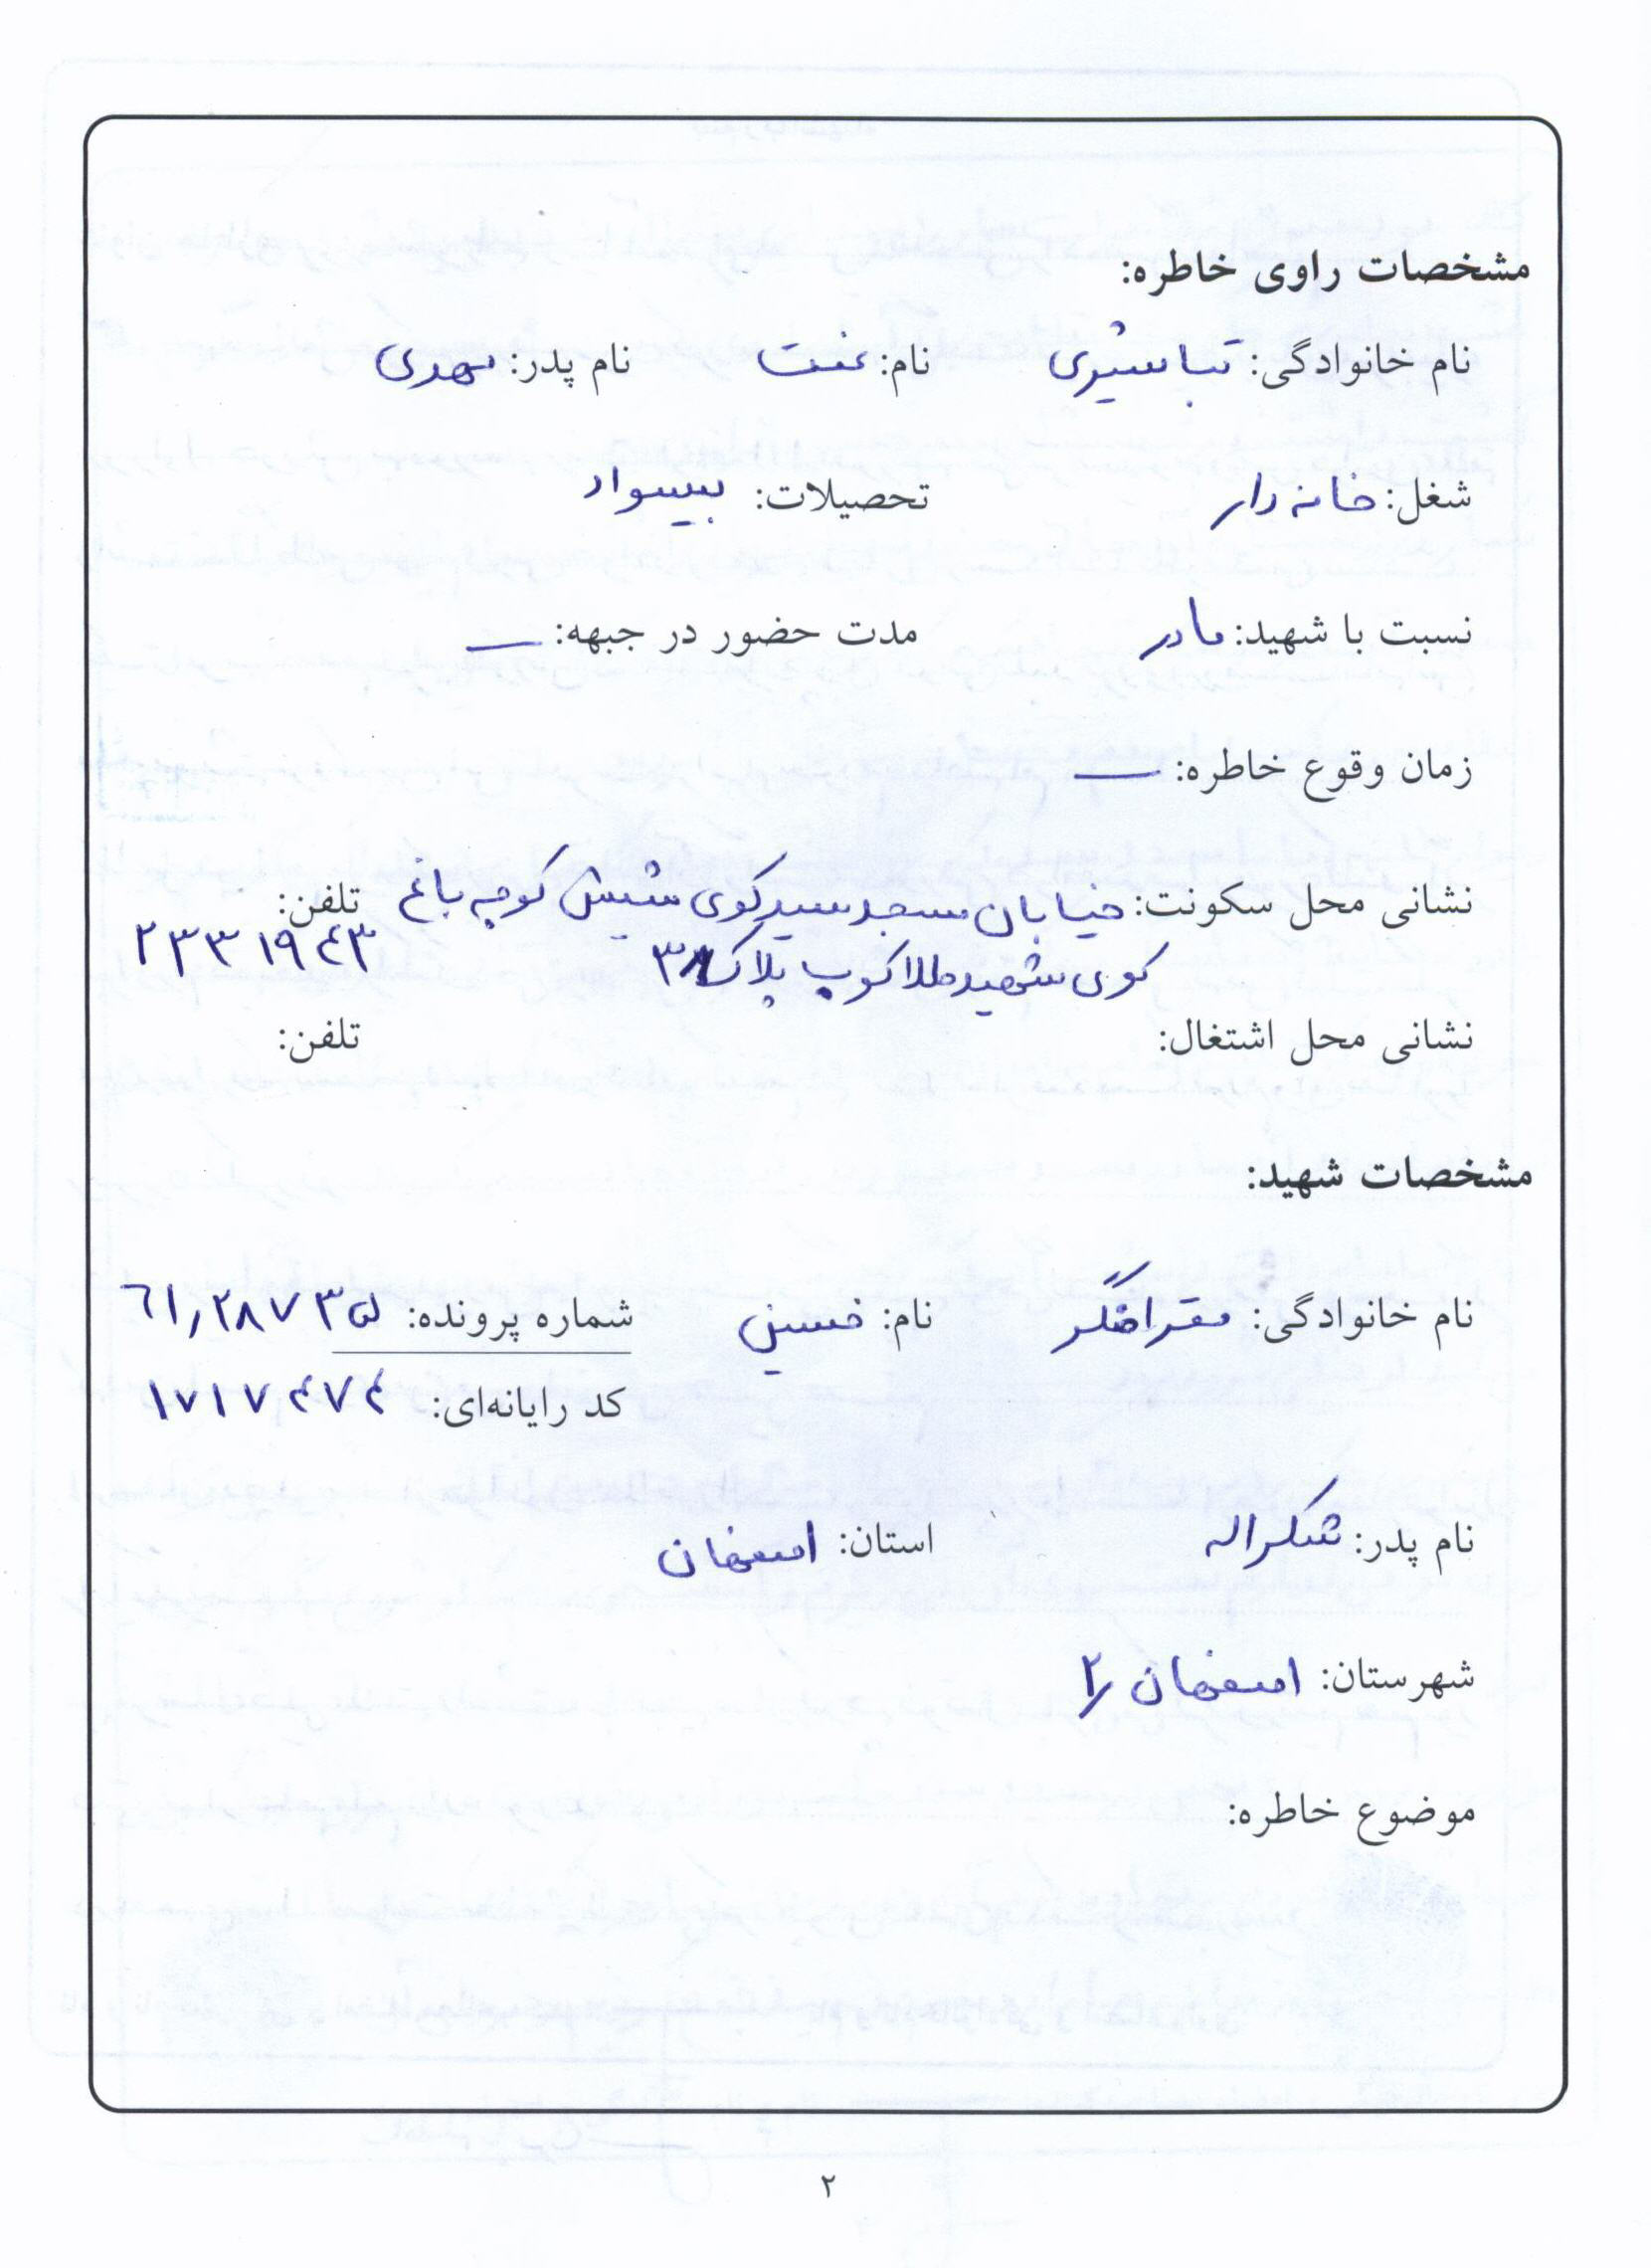 مشخصات راوی خاطره:
نام خانوادگی: تباشیری نام: عفت نام پدر: مهدی
شغل: خانه دار تحصیلات: بیسواد
نسبت با شهید: مادر مدت حضور در جبهه: —
زمان وقوع خاطره: —
نشانی محل سکونت: خیابان مسجد سید کوی شیش کوچه باغ تلفن:
کوی شهید طلاکوب پلاک ۳۸ ۲۳۳۱۹۴۳
نشانی محل اشتغال: تلفن:
مشخصات شهید:
نام خانوادگی: نام: حسین شماره پرونده: ۶۱,۲۸۷۳۵
کد رایانه‌ای: ۱۷۱۷۴۷۴
نام پدر: شکراله استان: اصفهان
شهرستان: اصفهان ۲
موضوع خاطره:
۲